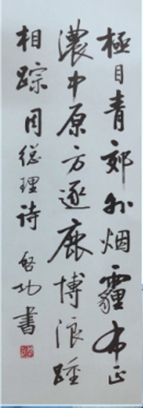 極目青郊外烟霾布正
濃中原方逐鹿博浪踵
相踪周総理詩 啓功書